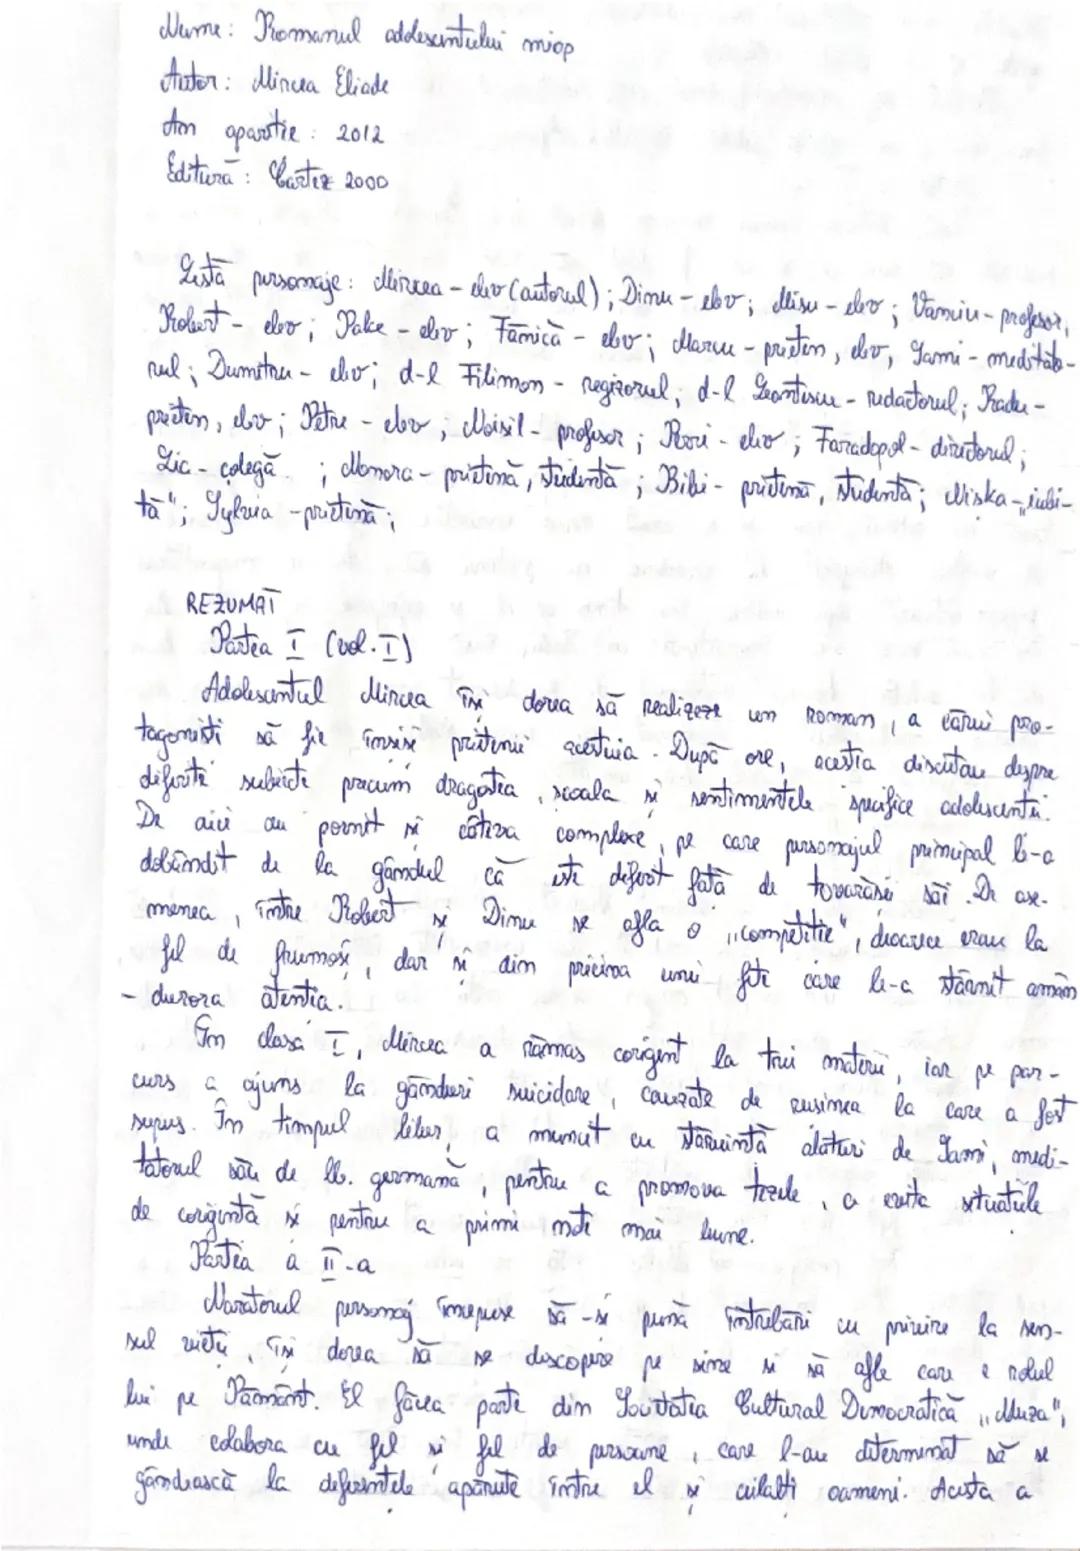 Nume: Romanul adolescentului miop
Autor: Mircea Eliade
An apariție: 2012
Editură: Cartex 2000
Listă personaje: Mircea - elev (autorul); Dinu - elev; Mișu - elev; Vanciu - profesor;
Robert - elev; Pake - elev; Fănică - elev; Marcu - prieten, elev, Sami - meditato-
rul; Dumitru - elev; d-l Filimon - regizorul; d-l Leontescu - redactorul; Radu -
prieten, elev; Petre - elev; Moisil - profesor; Perri - elev; Faradopol - directorul;
Lic - colegă ; Nonora - prietenă, studentă; Bibi - prietenă, studentă; Niska - „iubi-
tă"; Sylvia - prietenă;
REZUMAT
Partea I (vol. I)
Adolescentul Mircea își dorea să realizeze un roman, a cărui pro-
tagoniști să fie înșiși prietenii acestuia. După ore, aceștia discutau despre
diferite subiecte precum dragostea, școala și sentimentele specifice adolescenței.
De aici au pornit și câteva complexe, pe care personajul principal le-a
dobândit de la gândul că este diferit față de tovarășii săi. De ase-
menea, între Robert și Dinu se afla o „competiție", deoarece erau la
fel de frumoși, dar și din pricina unei fete care le-a stârnit amân-
- durora atenția.
În clasa I, Mircea a rămas corigent la trei materii, iar pe par-
curs a ajuns la gânduri suicidare, cauzate de rușinea la care a fost
supus. În timpul liber, a muncit cu stăruință alături de Sami, medi-
tatorul său de lb. germană, pentru a promova tezele, a evita situațiile
de corigență și pentru a primi note mai bune.
Partea a II-a
Naratorul personaj începuse să-și pună întrebări cu privire la sen-
sul vieții, își dorea să se descopere pe sine și să afle care e rolul
lui pe Pământ. El făcea parte din Societatea Cultural Democratică „Muza",
unde colabora cu fel și fel de persoane, care l-au determinat să se
gândească la diferențele apărute între el și ceilalți oameni. Acesta a